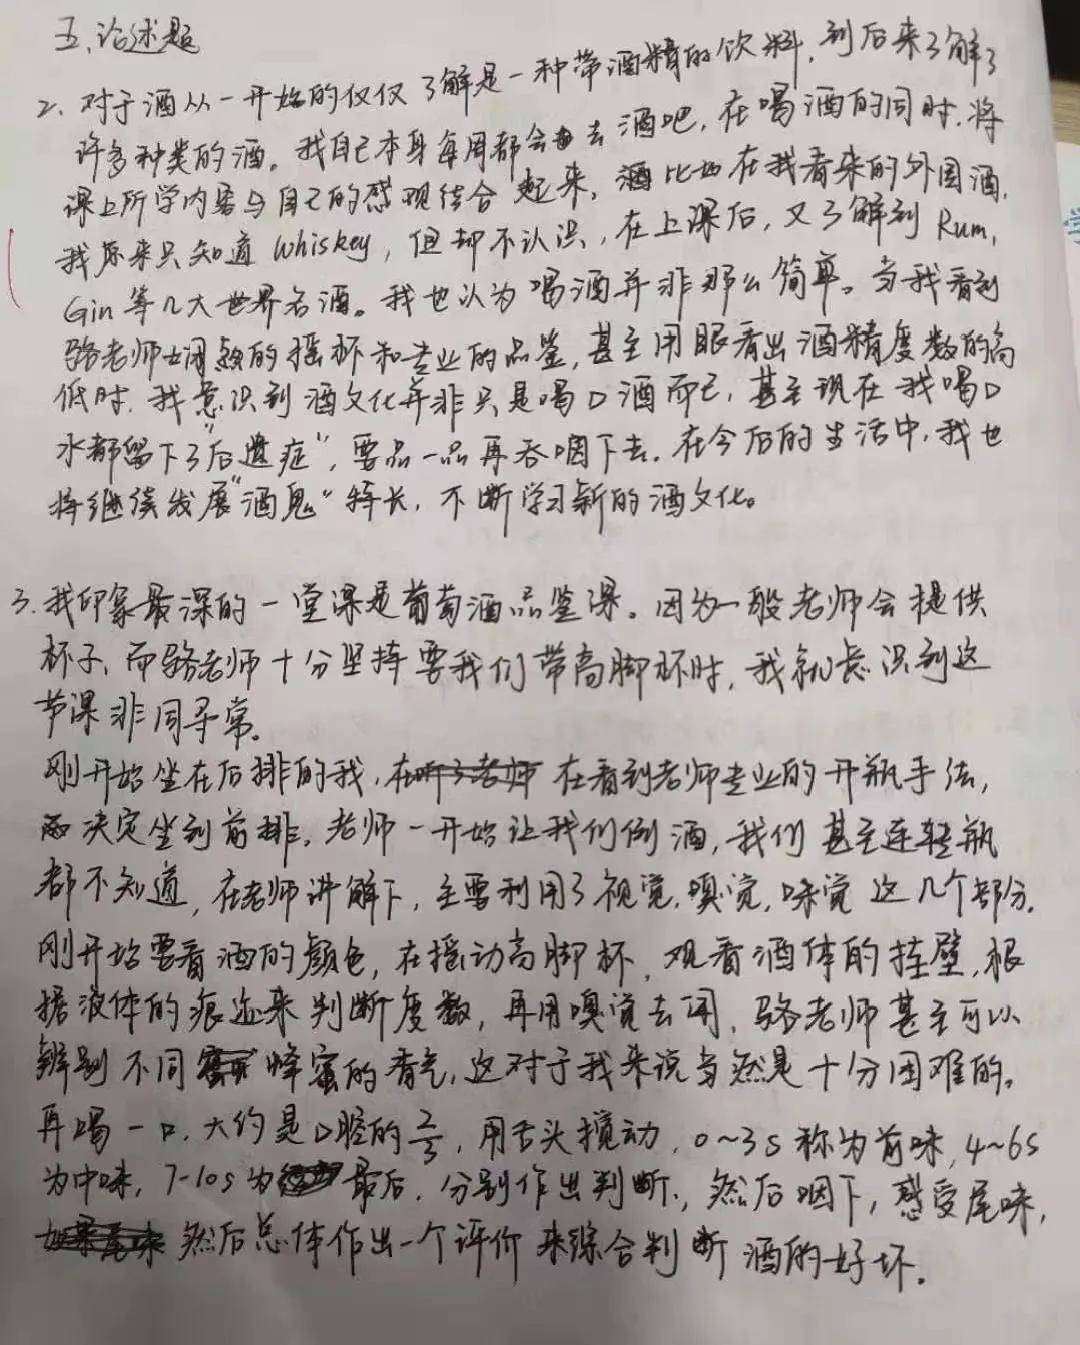 五、论述题
2. 对于酒从一开始的仅仅了解是一种带酒精的饮料，到后来了解了
许多种类的酒。我自己本身每周都会去酒吧，在喝酒的同时，将
课上所学内容与自己的感观结合起来，比如在我看来的外国酒，
我原来只知道Whiskey，但却不认识，在上课后，又了解到Rum，
Gin等几大世界名酒。我也认为喝酒并非那么简单。当我看到
骆老师娴熟的摇杯和专业的品鉴，甚至用眼看出酒精度数的高
低时，我意识到酒文化并非只是喝口酒而已，甚至现在我喝口
水都留下了“后遗症”，要品一品再吞咽下去。在今后的生活中，我也
将继续发展“酒鬼”特长，不断学习新的酒文化。
3. 我印象最深的一堂课是葡萄酒品鉴课。因为一般老师会提供
杯子，而骆老师十分坚持要我们带高脚杯时，我就意识到这
节课非同寻常。
刚开始坐在后排的我，在看到老师专业的开瓶手法，
而决定坐到前排。老师一开始让我们倒酒，我们甚至连转瓶
都不知道，在老师讲解下，主要利用了视觉，嗅觉，味觉这几个部分。
刚开始要看酒的颜色，在摇动高脚杯，观看酒体的挂壁，根
据液体的痕迹来判断度数，再用嗅觉去闻，骆老师甚至可以
辨别不同蜂蜜的香气，这对于我来说当然是十分困难的。
再喝一口，大约是口腔的2/3，用舌头搅动，0~3s称为前味，4~6s
为中味，7-10s为最后，分别作出判断，然后咽下，感受尾味，
然后总体作出一个评价来综合判断酒的好坏。